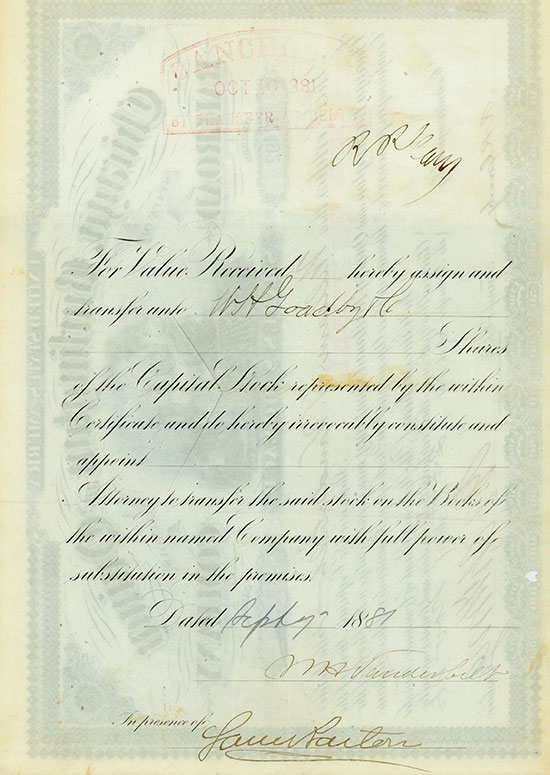 CANCELLED
OCT 10 1881
BY TRANSFER AS BELOW
For Value Received hereby assign and
transfer unto W H Goadby & Co
Shares
of the Capital Stock represented by the within
Certificate and do hereby irrevocably constitute and
appoint
Attorney to transfer the said stock on the Books of
the within named Company with full power of
substitution in the premises.
Dated Sept 1881
W H Vanderbilt
In presence of